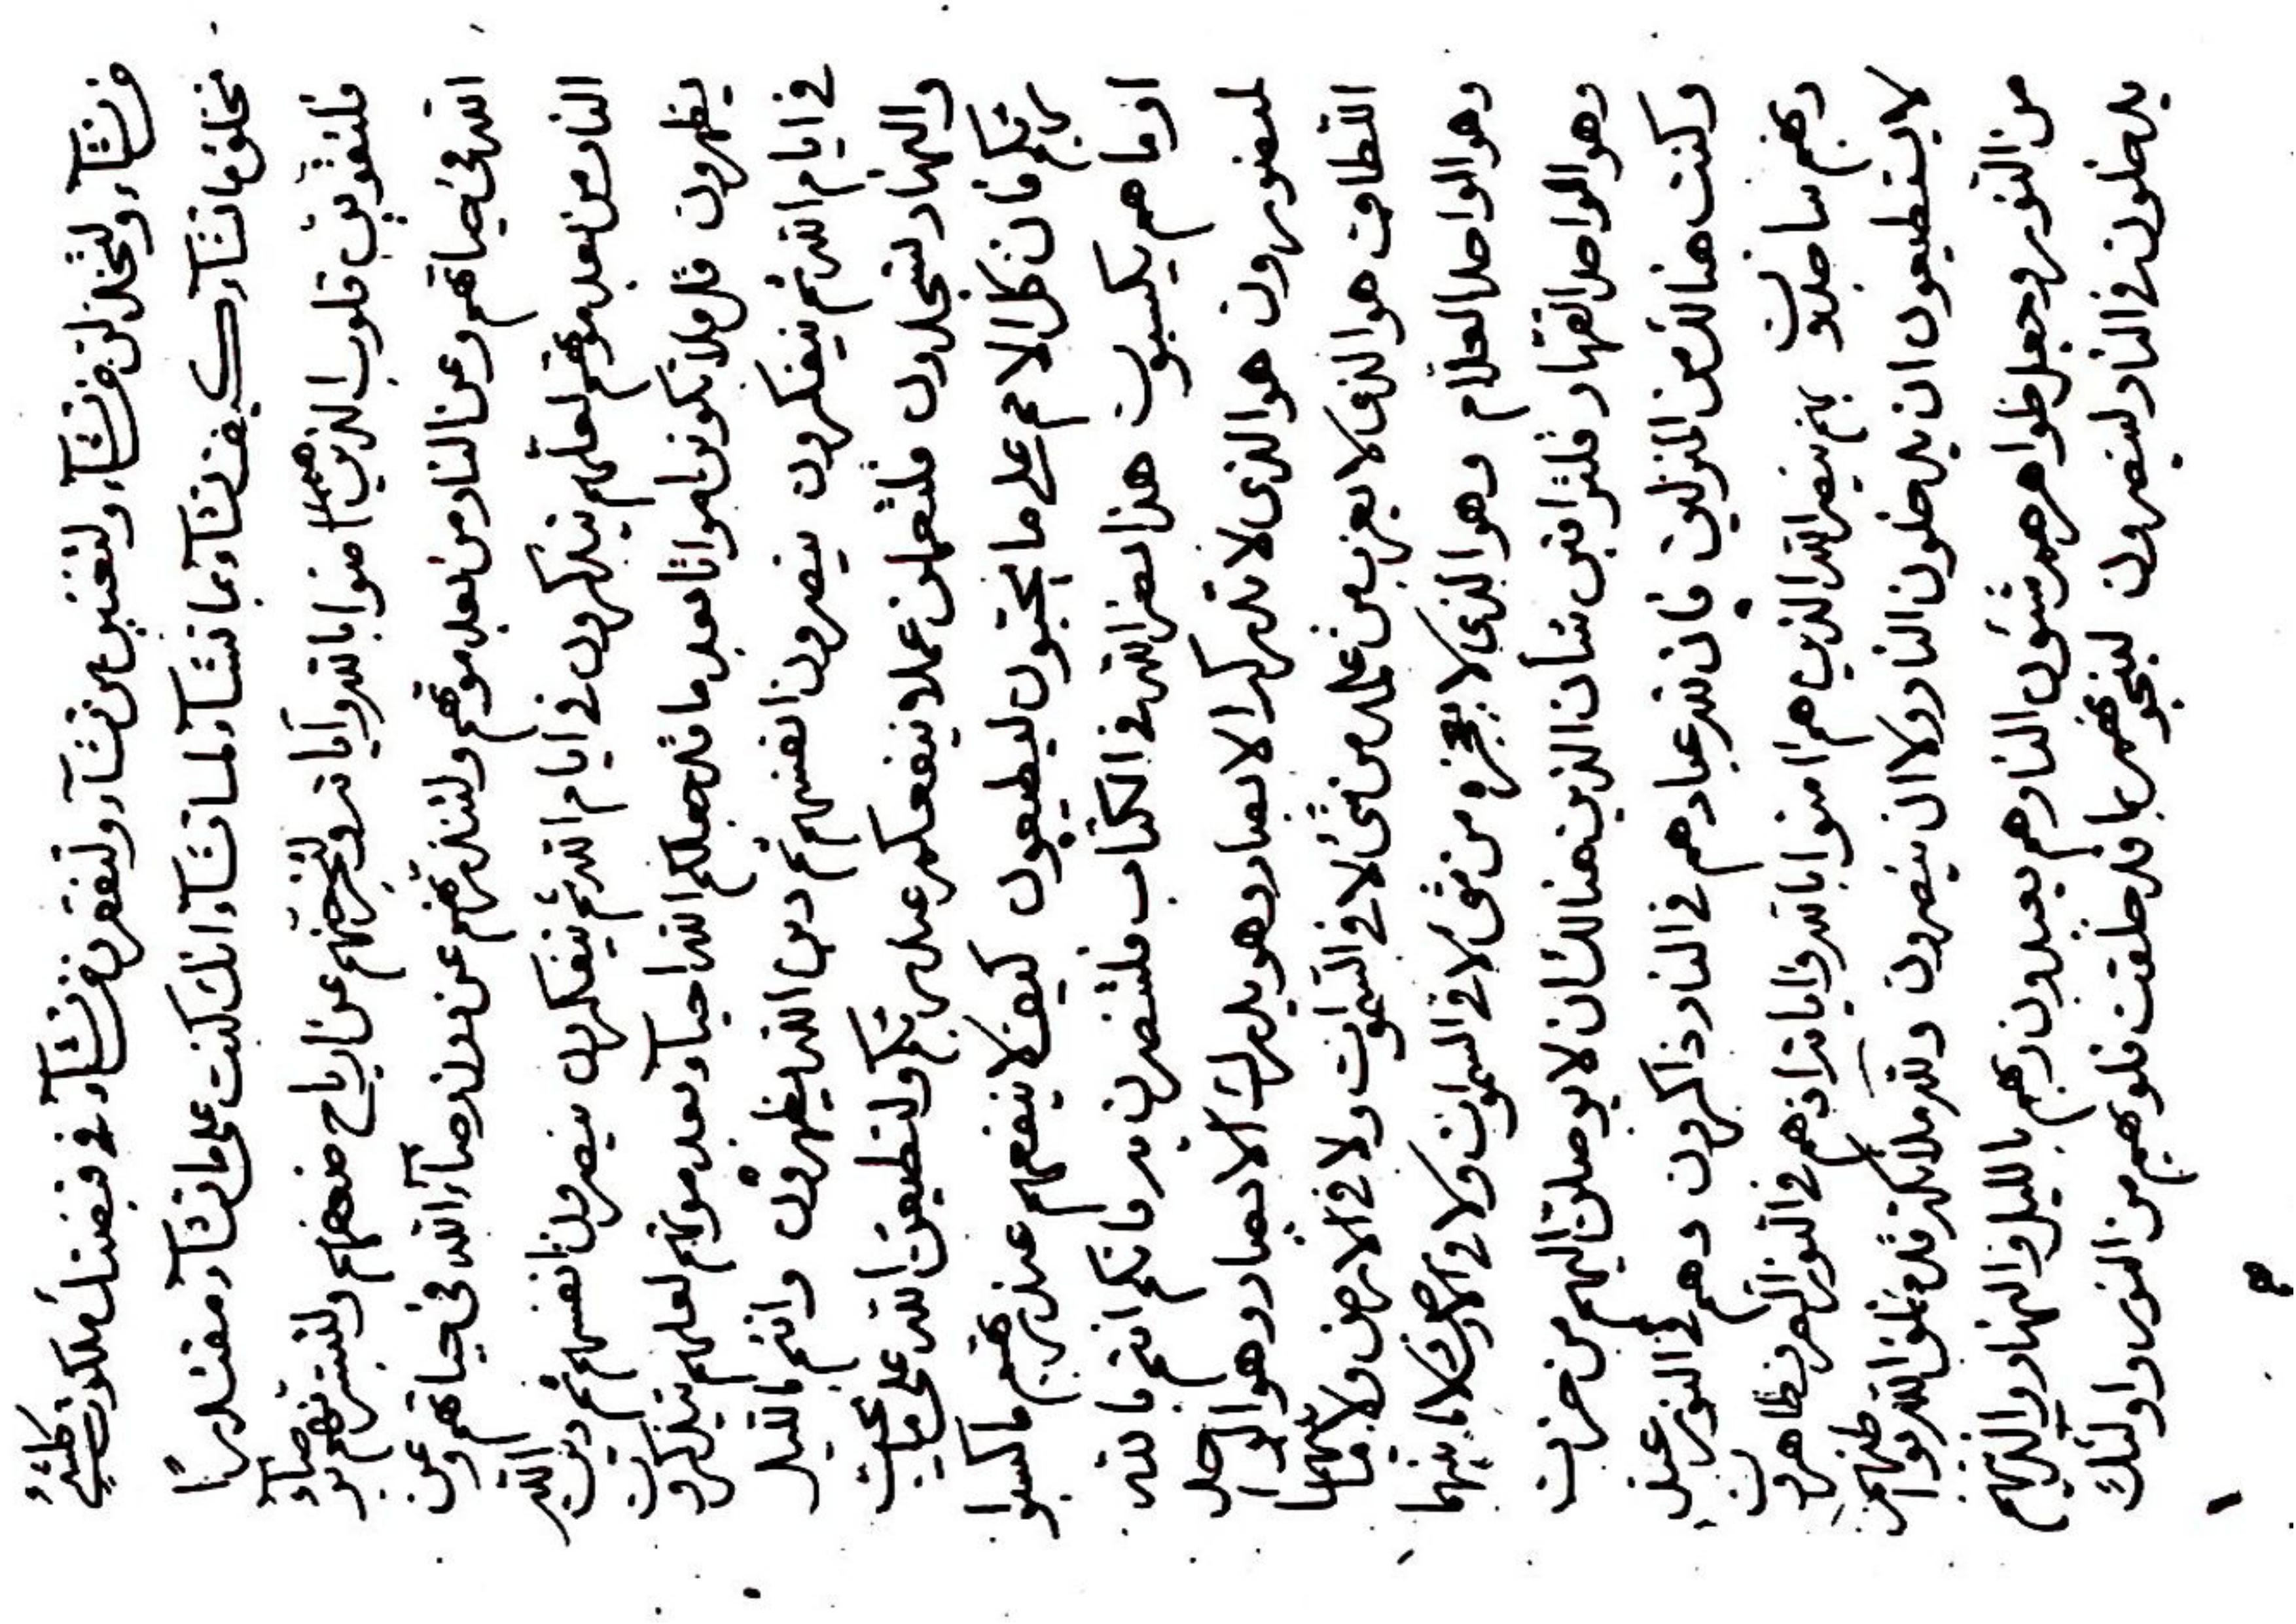 من تشآء ولتخذلن من تشآء ولتغنين من تشآء ولتفقرن من تشآء في قبضتك ملكوت كلشئ
تخلق ما تشآء كيف تشآء بما تشآء لما تشآء وانك كنت على ما تشآء مقتدرا
فلتقوين قلوب الذينهم امنوا بالله واياته ولتخرجنهم عن ارياح ضعفهم ولتبشرنهم برضآء
الله في حياتهم وعن النار من بعد موتهم ولتنذرنهم عن دون رضآء الله في حياتهم وعن
النار من بعد موتهم لعلهم يتذكرون في ايام الله ثم يتفكرون ينصرون انفسهم ثم دين الله
يظهرون قل فلا تكونن امواتا بعد ما قد جعلكم الله احيآء وبعد موتهم لعلهم يتذكرون
في ايام الله ثم يتفكرون ينصرون انفسهم ثم دين الله يظهرون وانتم بالليل
والنهار لتجدون فلتعملن عملا ينفعكم عند ربكم ولتطيعن الله على ما يحب
ربكم فان كل الامم على ما يحبون ليطيعون كيف لا ينفعهم عند ربهم ما كسبوا
او ما هم يكسبون هذا نصر الله في الكتاب فلتنصرن به فانكم انتم بالله
لتنصرون هو الذي لا تدركه الابصار وهو يدرك الابصار وهو الواحد
اللطاف هو الذي لا يعزب من علمه من شئ لا في السموات ولا في الارض ولا ما بينهما
وهو الواحد العلام وهو الذي لا يعجزه من شئ لا في السموات ولا في الارض ولا ما بينهما
وهو الواحد القهار فلتراقبن شأن الذين هنالك ان لا يوصلن اليهم من حزن
وكنت هنالك من المنزلين فان لله عباد هم في النار ذاكرون وهم في النور عند
ربهم ساجدون بهم ينصر الله الذين هم امنوا بالله واياته اذ هم في النور الهم نظاهرون
لا يستطيعون ان يدخلون النار ولا ان ينصرون ولله ملائكة قد خلق الله بواطنهم
من النور وجعل ظواهرهم شئون النار وهم يعبدون ربهم بالليل والنهار والذينهم
يدخلون في النار لينصرون لينجونهم بما قد خلقت قلوبهم من النور واولئك
هم